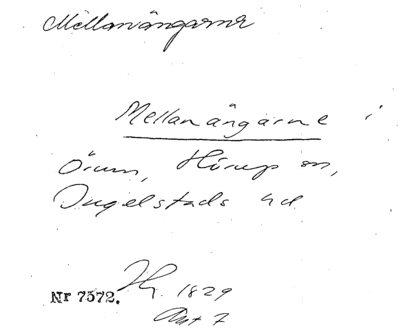 Mellanängarne
Mellanängarne i
Örum, Hörup sn,
Ingelstads hd
Nr 7572.
1829
Akt 7